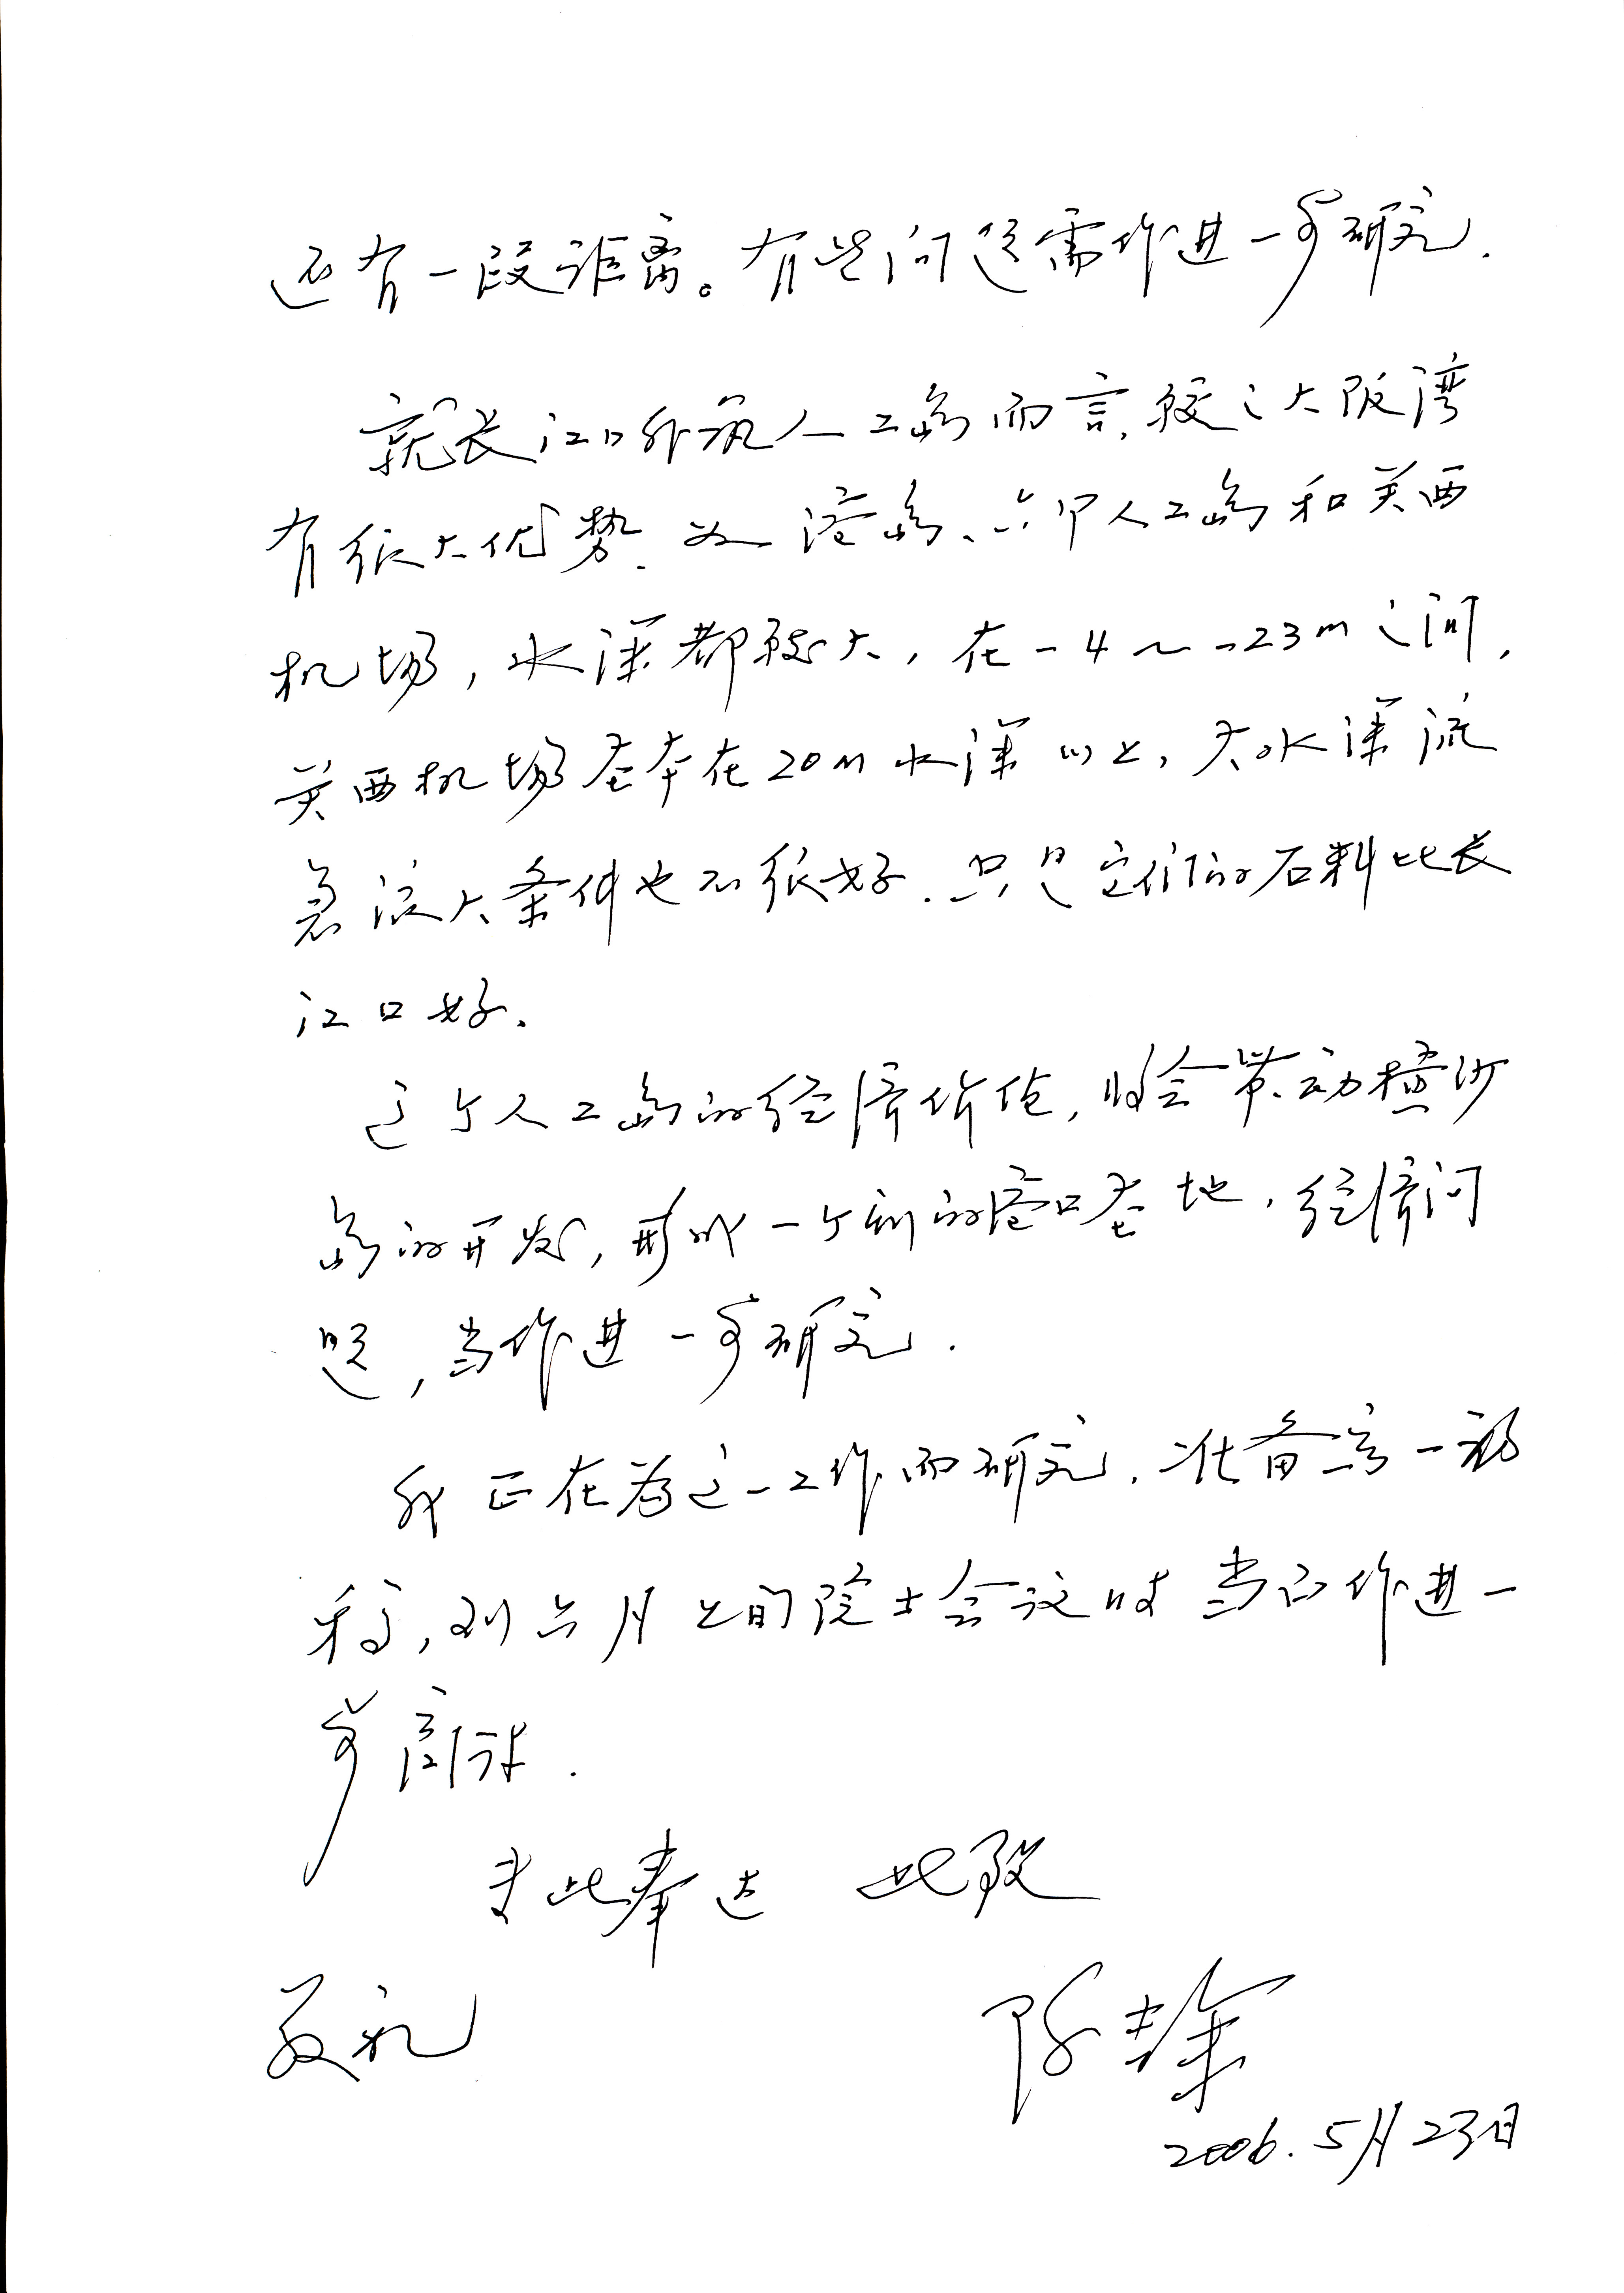 还有一段距离。有些问题需作进一步研究.
就长江口外筑人工岛而言,较之大阪湾
有很大优势.如港岛、六甲人工岛和关西
机场,水深都较大,在-4~-23m之间,
关西机场基本在20m水深以上,大水深流
急浪大条件也不很好.只是它们的石料比长
江口好.
这个人工岛的经济价值,将会带动横沙
岛的开发,形成一个新的港口基地,经济问
题,当作进一步研究.
我正在为这一工作而研究,准备写一初
稿,到六月上旬院士会议时当可作进一
步商讨.
专此奉达 此致
敬礼
陈吉余
2006.5月23日